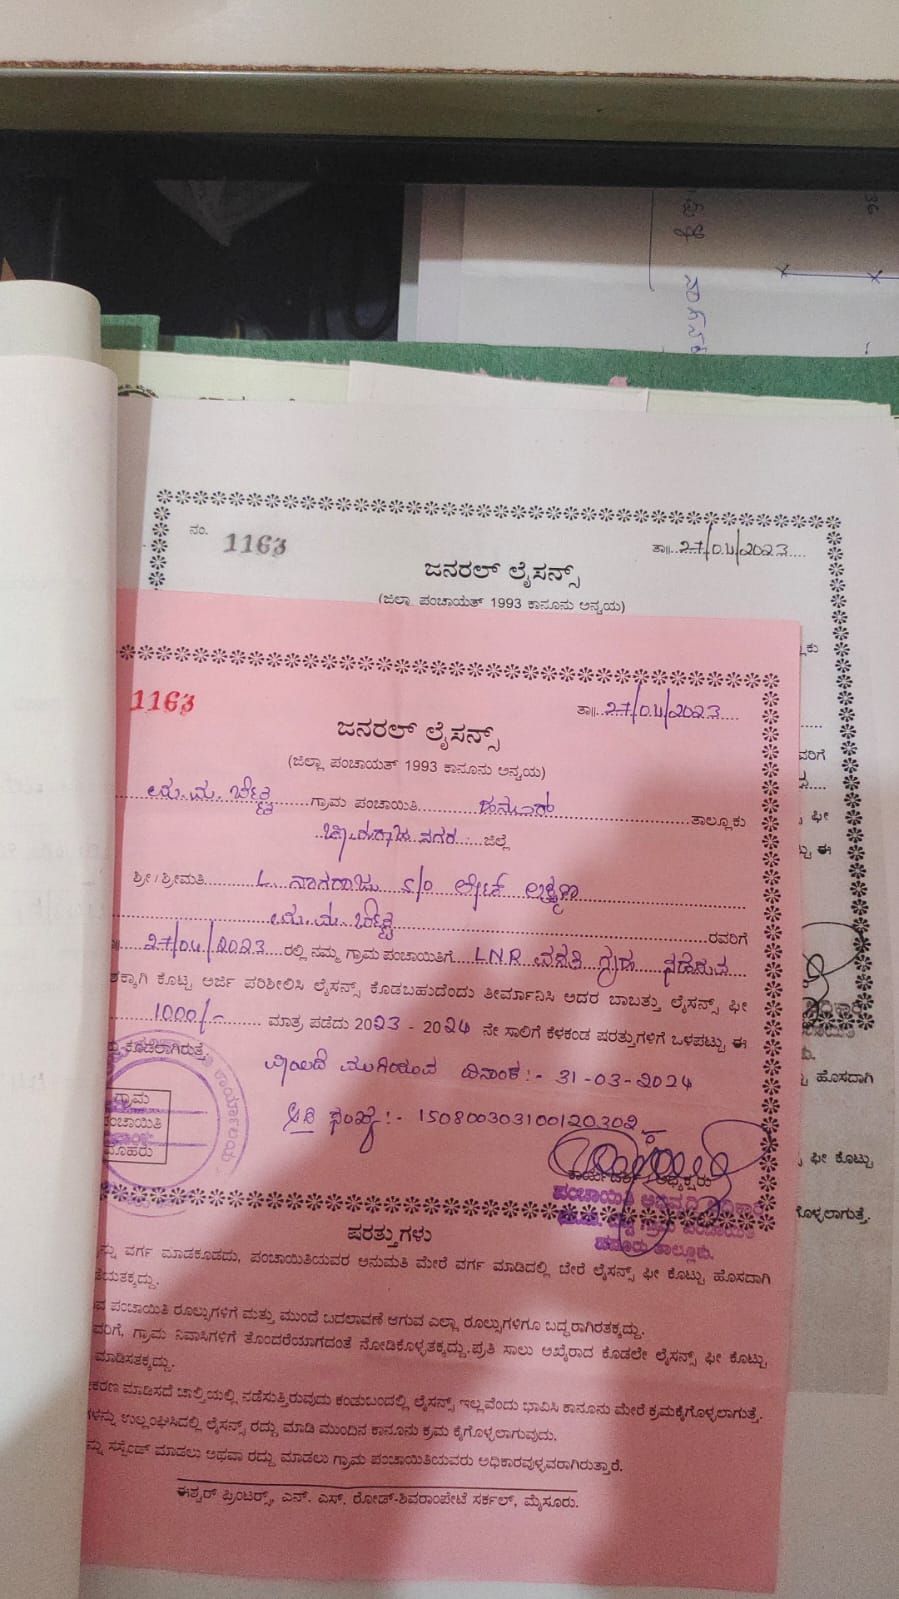 ನಂ. 1163
ತಾ॥ 27/04/2023
ಜನರಲ್ ಲೈಸನ್ಸ್
(ಜಿಲ್ಲಾ ಪಂಚಾಯತ್ 1993 ಕಾನೂನು ಅನ್ವಯ)
1163
ತಾ॥ 27/04/2023
ಜನರಲ್ ಲೈಸನ್ಸ್
(ಜಿಲ್ಲಾ ಪಂಚಾಯತ್ 1993 ಕಾನೂನು ಅನ್ವಯ)
ಮ.ಮ. ಬೆಟ್ಟ ಗ್ರಾಮ ಪಂಚಾಯಿತಿ ಹನೂರ್ ತಾಲ್ಲೂಕು
ಚಾಮರಾಜನಗರ ಜಿಲ್ಲೆ
ಶ್ರೀ/ಶ್ರೀಮತಿ L ನಾಗರಾಜು S/O ಲೇಟ್
ಮ.ಮ. ಬೆಟ್ಟ ರವರಿಗೆ
27/04/2023 ರಲ್ಲಿ ನಮ್ಮ ಗ್ರಾಮ ಪಂಚಾಯಿತಿಗೆ LNR ವಸತಿ ಗೃಹ ನಡೆಸುವ
ಕೊಟ್ಟ ಅರ್ಜಿ ಪರಿಶೀಲಿಸಿ ಲೈಸನ್ಸ್ ಕೊಡಬಹುದೆಂದು ತೀರ್ಮಾನಿಸಿ ಅದರ ಬಾಬತ್ತು ಲೈಸನ್ಸ್ ಫೀ
1000/- ಮಾತ್ರ ಪಡೆದು 2023 - 2024 ನೇ ಸಾಲಿಗೆ ಕೆಳಕಂಡ ಷರತ್ತುಗಳಿಗೆ ಒಳಪಟ್ಟು ಈ
ಕೊಡಲಾಗಿರುತ್ತೆ.
ವಾಯಿದೆ ಮುಗಿಯುವ ದಿನಾಂಕ :- 31-03-2024
ಐಡಿ ಸಂಖ್ಯೆ :- 150800303100120302
ಗ್ರಾಮ
ಪಂಚಾಯಿತಿ
ಮೊಹರು
ಪಂಚಾಯಿತಿ ಅಭಿವೃದ್ಧಿ ಅಧಿಕಾರಿ
ಹನೂರು ತಾಲ್ಲೂಕು.
ಷರತ್ತುಗಳು
ವರ್ಗ ಮಾಡಕೂಡದು, ಪಂಚಾಯಿತಿಯವರ ಅನುಮತಿ ಮೇರೆ ವರ್ಗ ಮಾಡಿದಲ್ಲಿ ಬೇರೆ ಲೈಸನ್ಸ್ ಫೀ ಕೊಟ್ಟು ಹೊಸದಾಗಿ
ಪಂಚಾಯಿತಿ ರೂಲ್ಸುಗಳಿಗೆ ಮತ್ತು ಮುಂದೆ ಬದಲಾವಣೆ ಆಗುವ ಎಲ್ಲಾ ರೂಲ್ಸುಗಳಿಗೂ ಬದ್ಧರಾಗಿರತಕ್ಕದ್ದು.
ಗ್ರಾಮ ನಿವಾಸಿಗಳಿಗೆ ತೊಂದರೆಯಾಗದಂತೆ ನೋಡಿಕೊಳ್ಳತಕ್ಕದ್ದು. ಪ್ರತಿ ಸಾಲು ಅಖೈರಾದ ಕೊಡಲೇ ಲೈಸನ್ಸ್ ಫೀ ಕೊಟ್ಟು
ಮಾಡಿಸತಕ್ಕದ್ದು.
ಮಾಡಿಸದೆ ಚಾಲ್ತಿಯಲ್ಲಿ ನಡೆಸುತ್ತಿರುವುದು ಕಂಡುಬಂದಲ್ಲಿ ಲೈಸನ್ಸ್ ಇಲ್ಲವೆಂದು ಭಾವಿಸಿ ಕಾನೂನು ಮೇರೆ ಕ್ರಮಕೈಗೊಳ್ಳಲಾಗುತ್ತೆ.
ಉಲ್ಲಂಘಿಸಿದಲ್ಲಿ ಲೈಸನ್ಸ್ ರದ್ದು ಮಾಡಿ ಮುಂದಿನ ಕಾನೂನು ಕ್ರಮ ಕೈಗೊಳ್ಳಲಾಗುವುದು.
ಸಸ್ಪೆಂಡ್ ಮಾಡಲು ಅಥವಾ ರದ್ದು ಮಾಡಲು ಗ್ರಾಮ ಪಂಚಾಯಿತಿಯವರು ಅಧಿಕಾರವುಳ್ಳವರಾಗಿರುತ್ತಾರೆ.
ಈಶ್ವರ್ ಪ್ರಿಂಟರ್ಸ್, ಎನ್. ಎಸ್. ರೋಡ್-ಶಿವರಾಂಪೇಟೆ ಸರ್ಕಲ್, ಮೈಸೂರು.